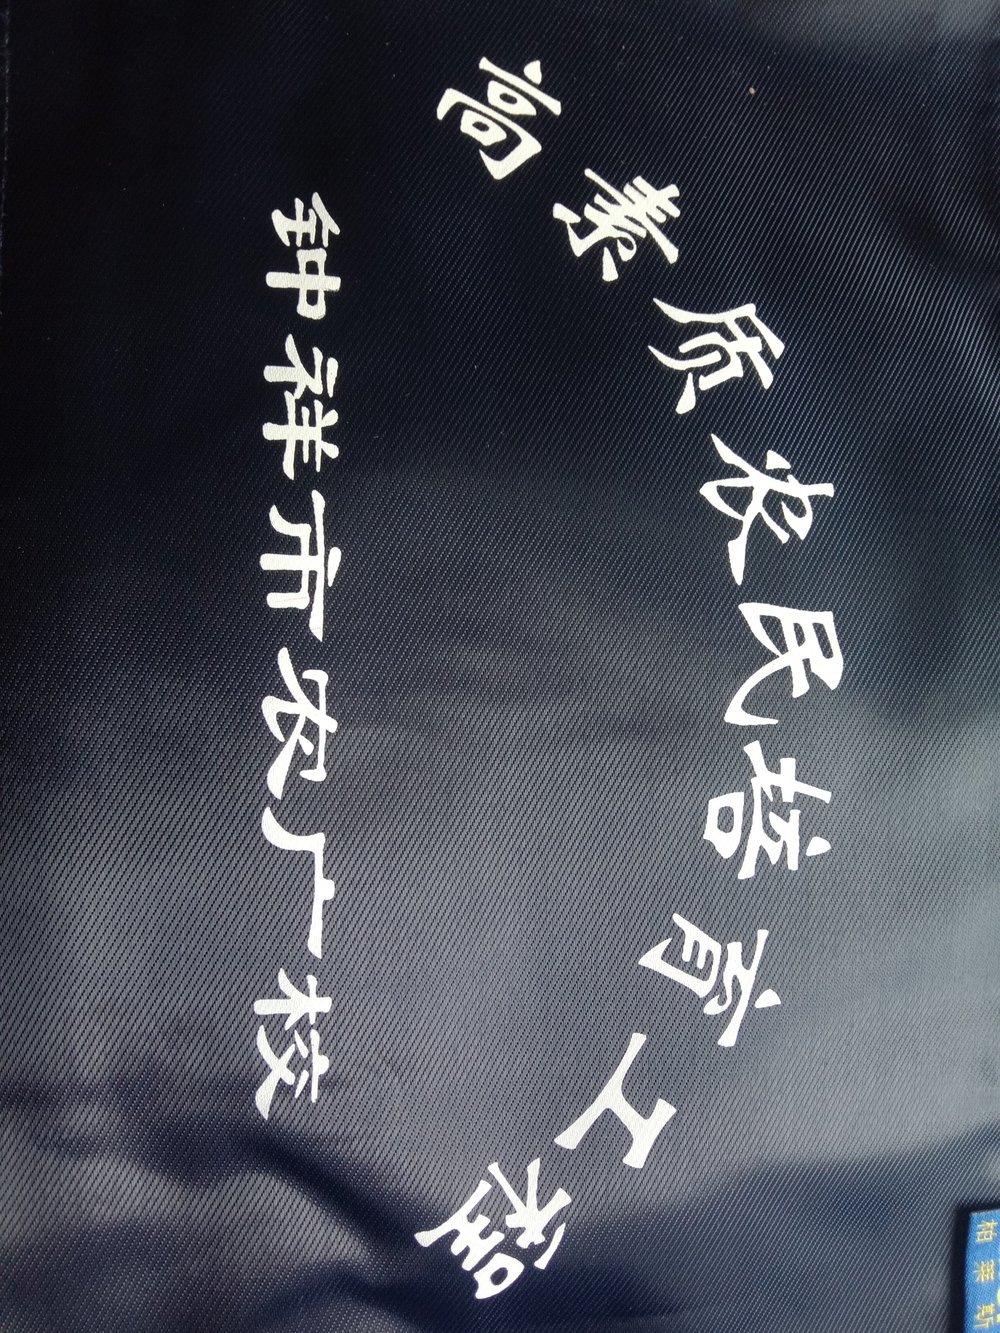 高素质农民培育工程
钟祥市农广校
柏莱斯